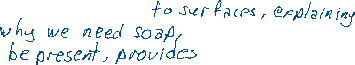 to surfaces, explaining
why we need soap,
be present, provides